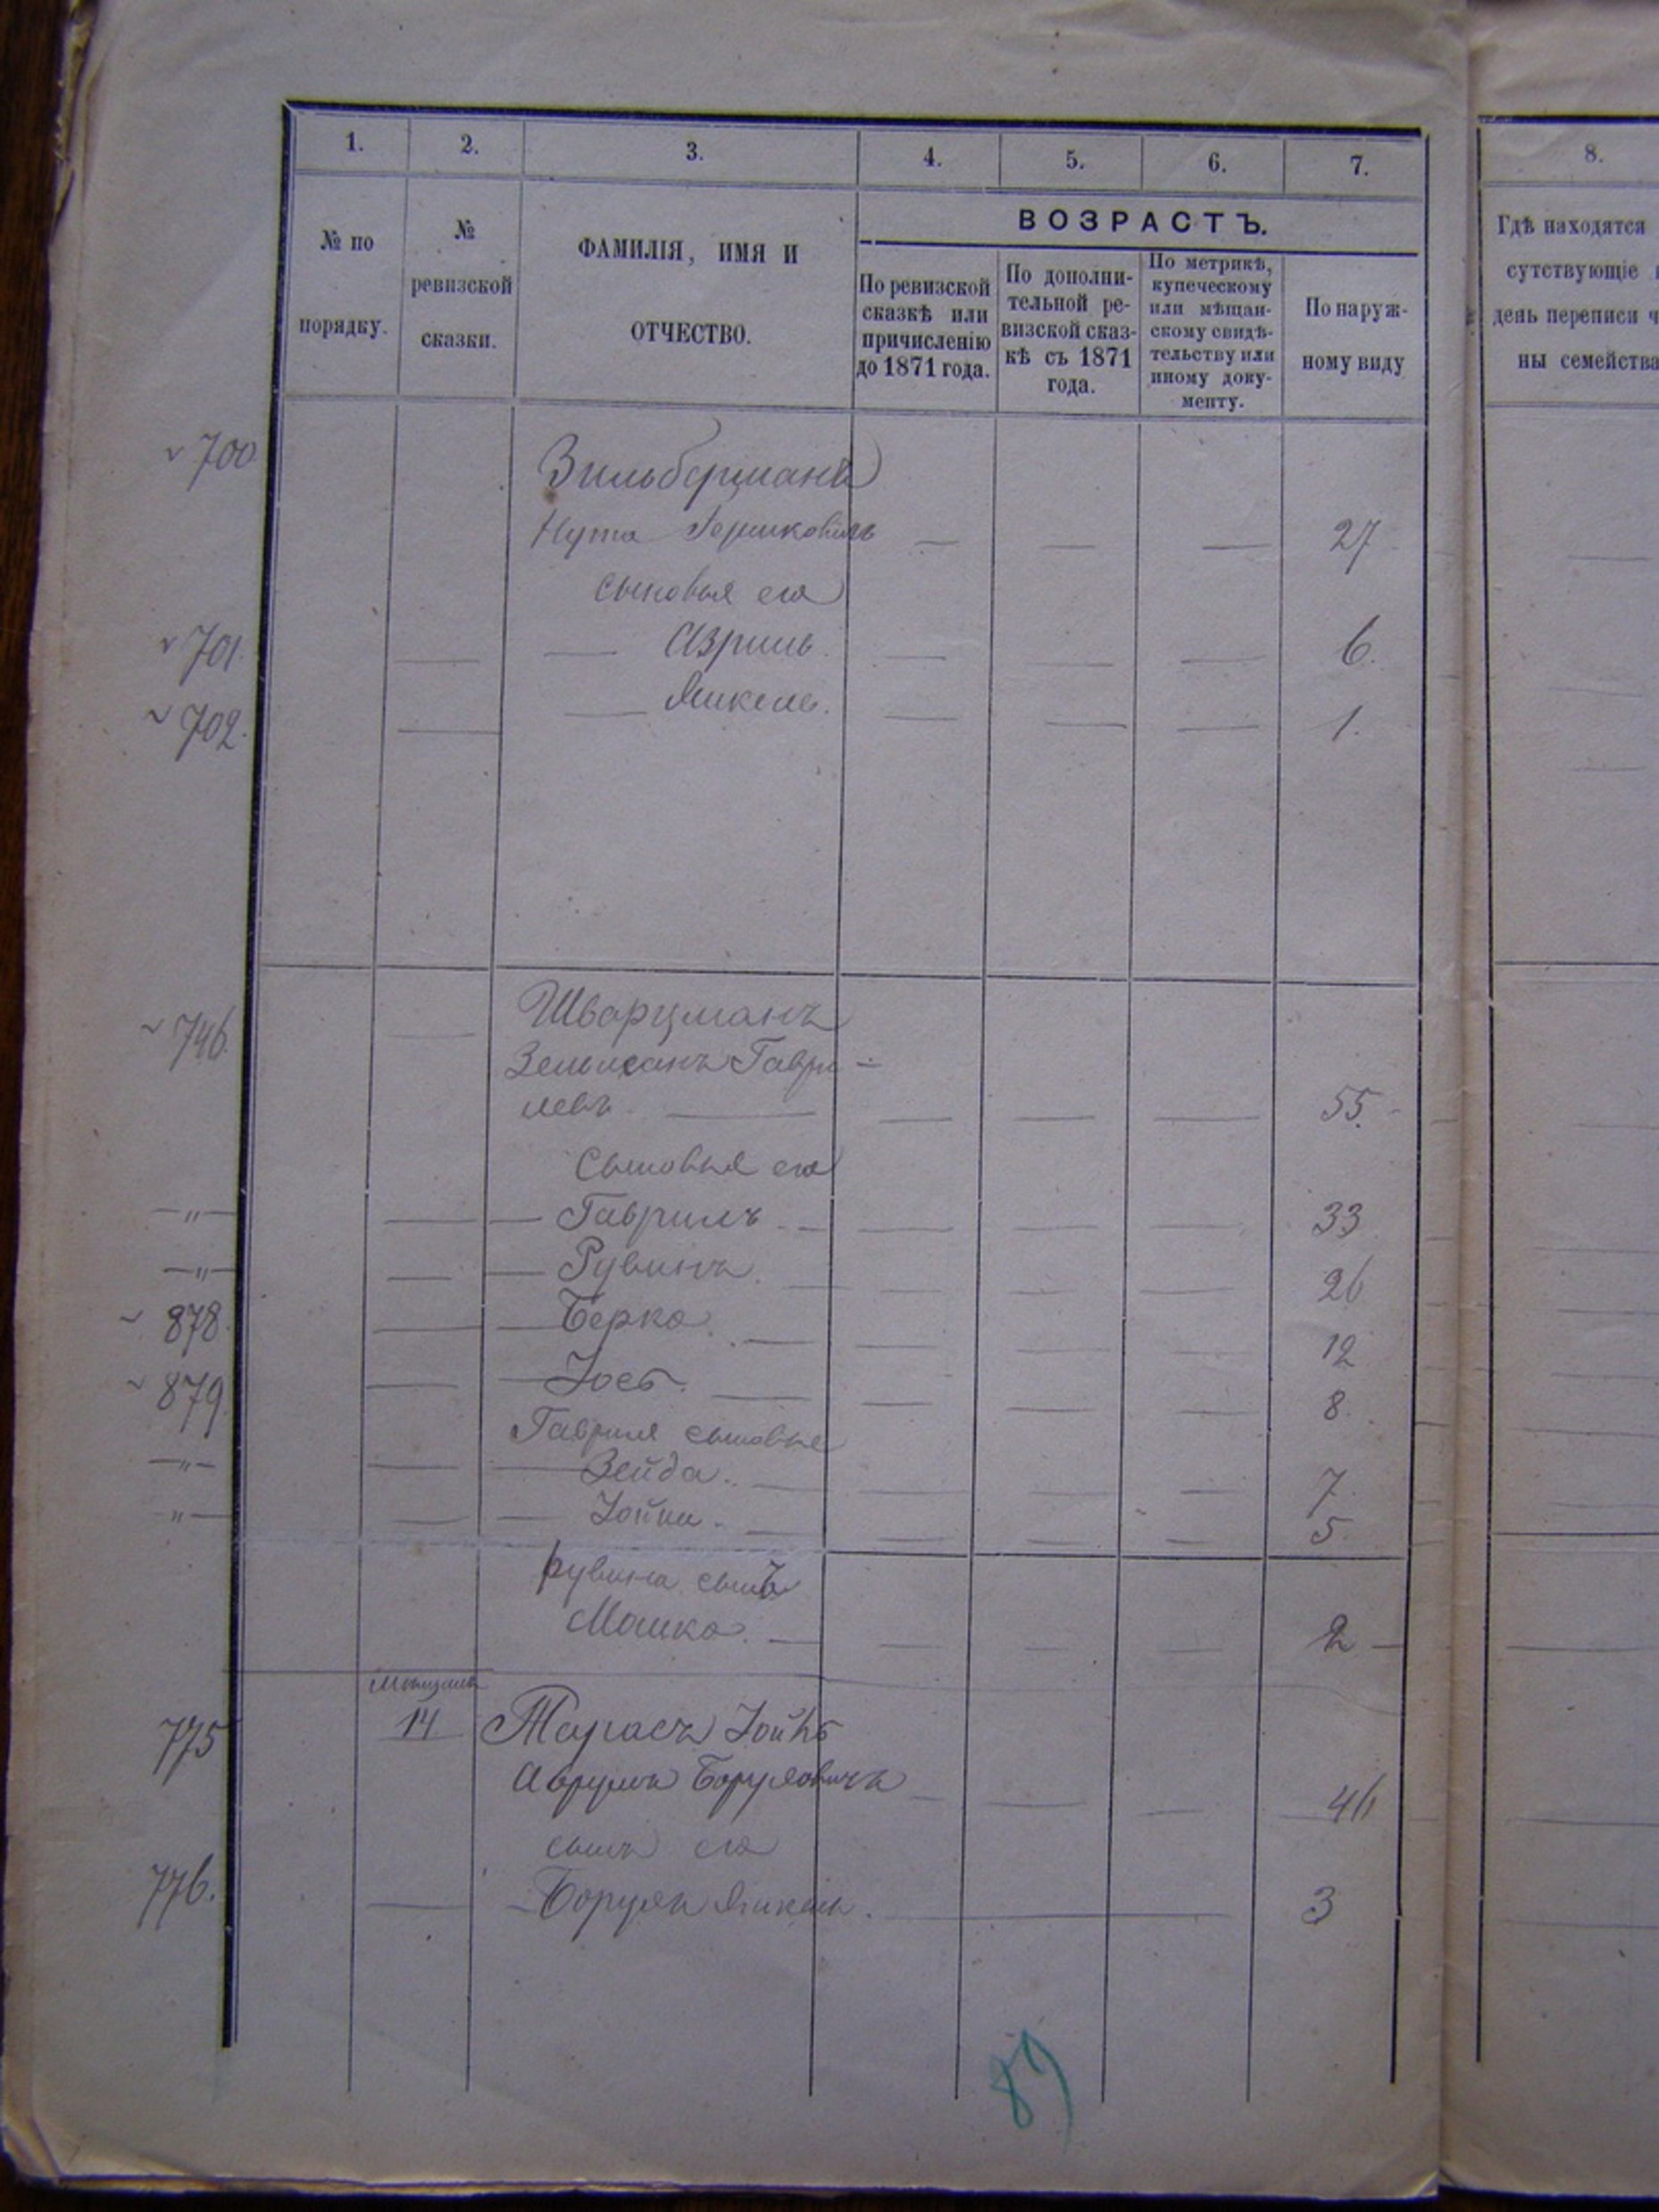 1. 2. 3. 4. 5. 6. 7. 8.
№ по порядку.
№ ревизской сказки.
ФАМИЛІЯ, ИМЯ И ОТЧЕСТВО.
ВОЗРАСТЪ.
По ревизской сказкѣ или причисленію до 1871 года.
По дополни-тельной ре-визской сказ-кѣ съ 1871 года.
По метрикѣ, купеческому или мѣщан-скому свидѣ-тельству или иному доку-менту.
По наруж-ному виду
Гдѣ находятся
сутствующіе
день переписи ч
ны семейства
700 Зильберманъ
Нута Гершковичъ — — — 27
сыновья его
701. — — Азриль. — — — 6.
702. — — Янкель. — — — 1.
746. — Шварцманъ
Зельманъ Гаври-
левъ. — — — — 55.
Сыновья его
—〃— — — Гаврилъ — — — — 33
—〃— — — Рувинъ. — — — — 26
878. — — Берко. — — — — 12
879. — — Іосъ. — — — — 8.
Гавриля сыновья
—〃— — — Зейда. — — — — 7.
〃— — — Іойни. — — — — 5.
Рувина сынъ
Мошко. — — — — 2 —
мѣщане
775 14 Тарасъ
Аврумъ Боруховичъ — — — 46
сынъ его
776. — — Борухъ Янкель. — 3
89